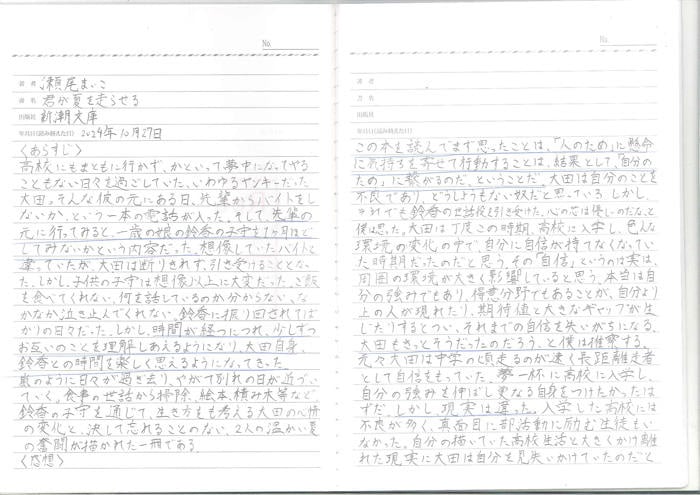 No.
著者 瀬尾まいこ
書名 君が夏を走らせる
出版社 新潮文庫
年月日(読み終えた日) 2024年10月27日
〈あらすじ〉
高校にもまともに行かず、かといって夢中になってやる
こともない日々を過ごしていた、いわゆるヤンキーだった
大田。そんな彼の元にある日、先輩からバイトをし
ないか、という一本の電話が入った。そして、先輩の
元に行ってみると、一歳の娘の鈴香の子守を1ヶ月ほど
してみないかという内容だった。想像していたバイトと
違っていたが、大田は断りきれず、引き受けることとな
た。しかし、子供の子守は想像以上に大変だった。ご飯
を食べてくれない、何を話しているのか分からない、な
かなか泣き止んでくれない。鈴香に振り回されてば
かりの日々だった。しかし、時間が経つにつれ、少しずつ
お互いのことを理解しあえるようになり、大田自身、
鈴香との時間を楽しく思えるようになってきた。
嵐のように日々が過ぎ去り、やがて別れの日が近づい
ていく。食事の世話から掃除、絵本、積み木等など、
鈴香の子守を通じて、生き方をも考える大田の心情
の変化と、決して忘れることのない、2人の温かい夏
の奮闘が描かれた一冊である。
〈感想〉
No.
著者
書名
出版社
年月日(読み終えた日)
この本を読んでまず思ったことは、「人のため」に懸命
に気持ちを寄せて行動することは、結果として、「自分の
ため」に繋がるのだ、ということだ。大田は自分のことを
不良であり、どうしようもない奴だと思っている。しかし、
それでも鈴香の世話役を引き受けた。心の芯は優しいのだな、と
僕は思った。大田は丁度この時期、高校に入学し、色んな
環境の変化の中で、自分に自信が持てなくなってい
た時期だったのだと思う。その「自信」というのは実は、
周囲の環境が大きく影響していると思う。本当は自
分の強みでもあり、得意分野でもあることが、自分より
上の人が現れたり、期待値と大きなギャップが生
じたりするとつい、それまでの自信を失いがちになる。
大田もきっとそうだったのだろう、と僕は推察する。
元々大田は中学の頃走るのが速く長距離走者
として自信をもっていた。夢一杯に高校に入学し、
自分の強みを伸ばし更なる自身をつけたかったは
ずだ。しかし、現実は違った。入学した高校には
不良が多く、真面目に部活動に励む生徒もい
なかった。自分の描いていた高校生活と大きくかけ離
れた現実に大田は自分を見失いかけていたのだと